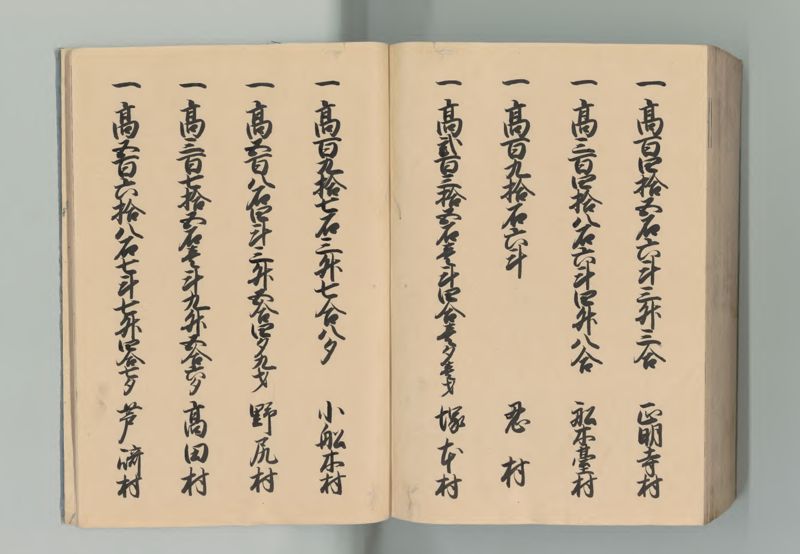 一 高百四拾五石六斗三升三合 正明寺村
一 高三百四拾八石六斗四升八合 船木臺村
一 高百九拾石六斗 忍村
一 高貳百三拾五石壱斗四合壱夕壱才 塚本村
一 高百九拾七石三升七合八夕 小船木村
一 高五百八石四斗三升五合四夕九才 野尻村
一 高三百七拾五石壱斗九升五合六夕 高田村
一 高五百六拾八石七斗七升四合七夕 芦浦村